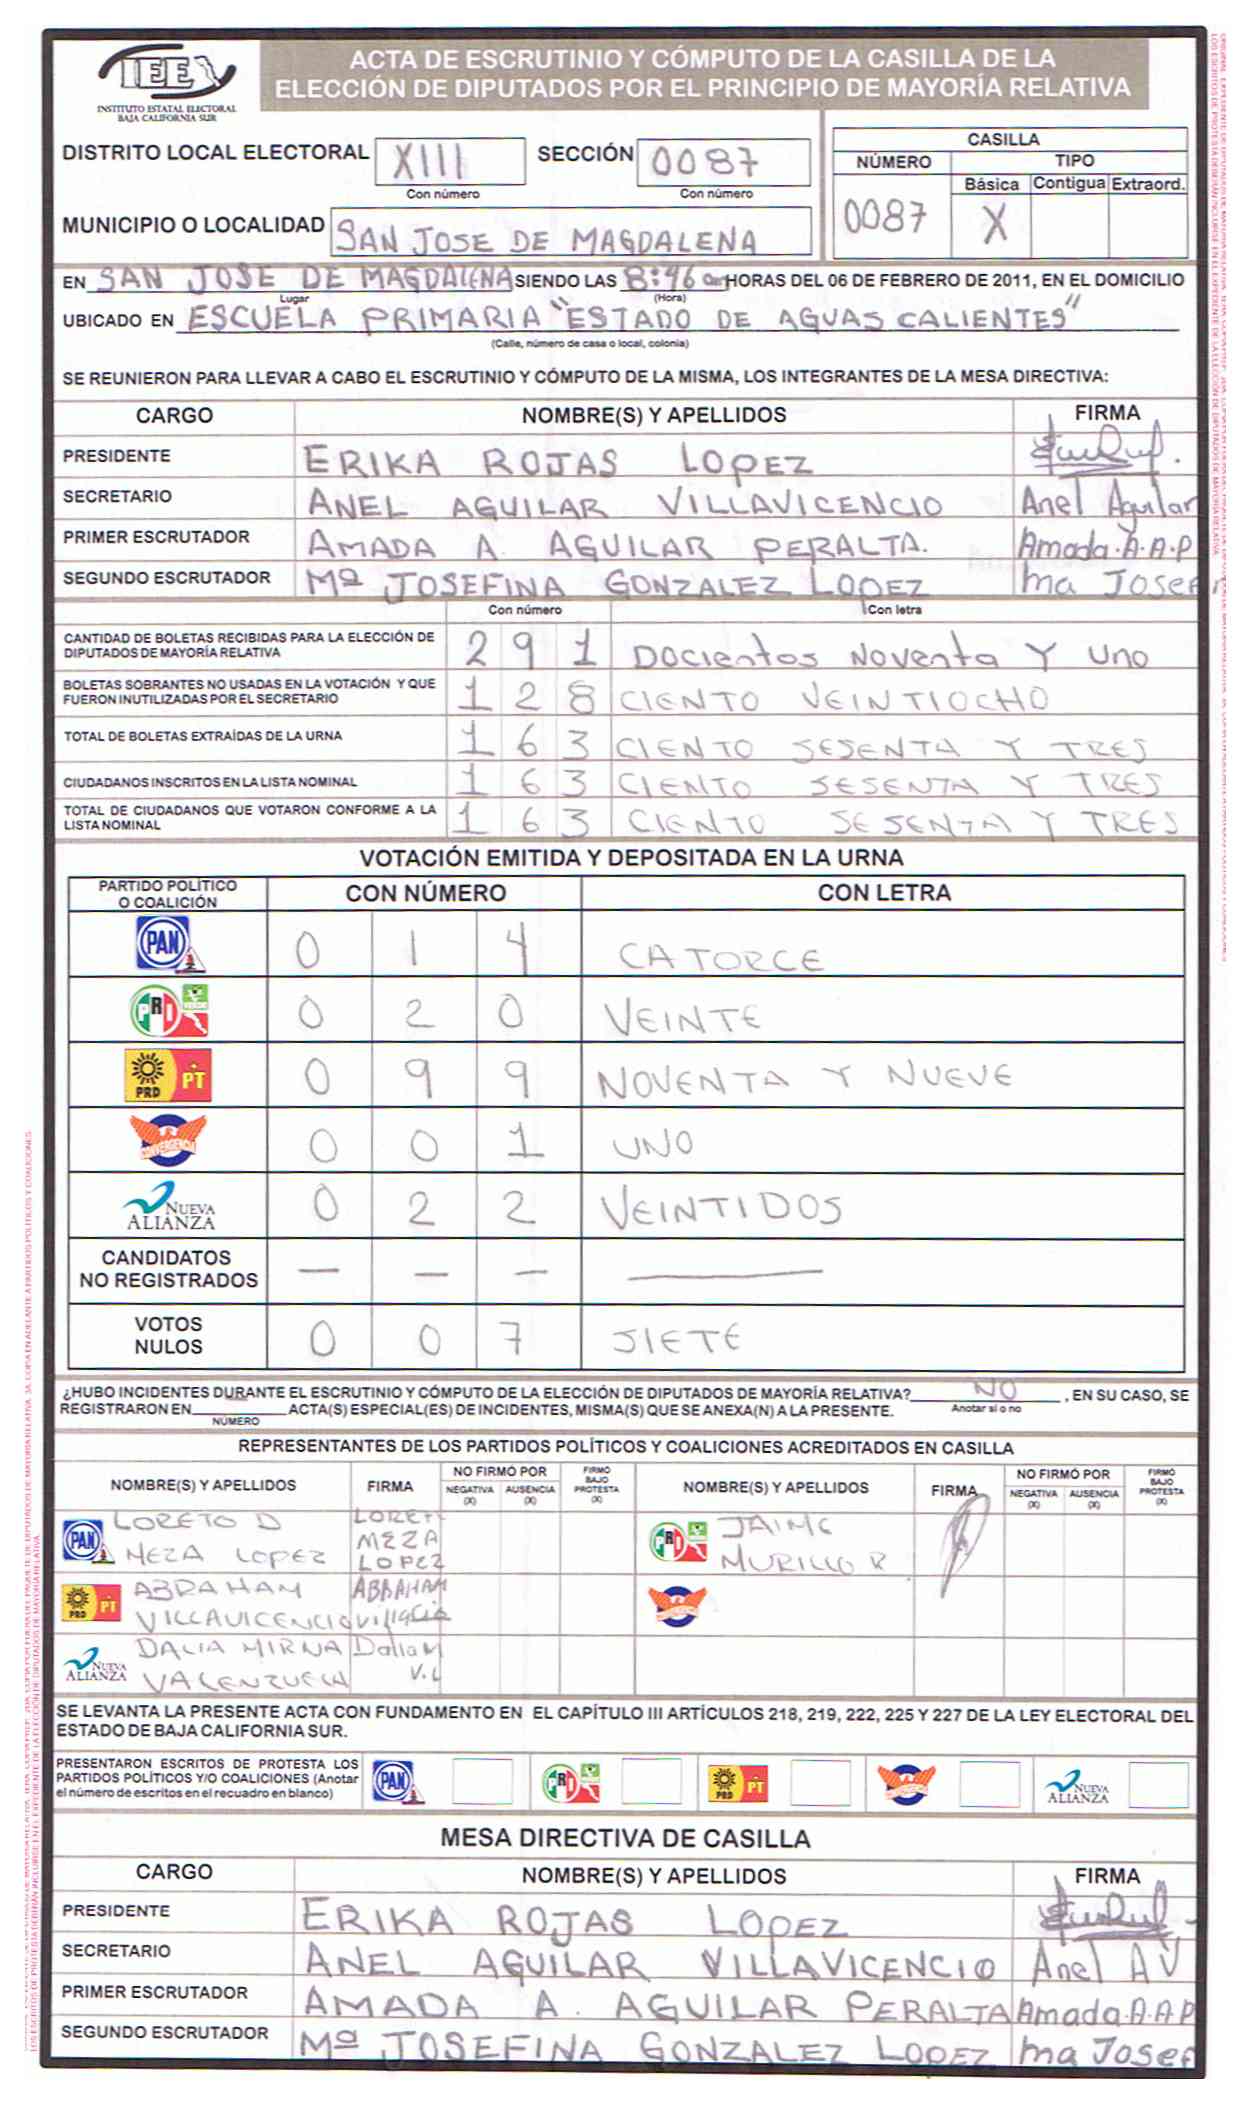 IEE
INSTITUTO ESTATAL ELECTORAL
BAJA CALIFORNIA SUR
ACTA DE ESCRUTINIO Y CÓMPUTO DE LA CASILLA DE LA
ELECCIÓN DE DIPUTADOS POR EL PRINCIPIO DE MAYORÍA RELATIVA
DISTRITO LOCAL ELECTORAL XIII SECCIÓN 0087
Con número Con número
MUNICIPIO O LOCALIDAD SAN JOSE DE MAGDALENA
CASILLA
NÚMERO TIPO
Básica Contigua Extraord.
0087 X
EN SAN JOSE DE MAGDALENA SIENDO LAS 8:46 HORAS DEL 06 DE FEBRERO DE 2011, EN EL DOMICILIO
Lugar (Hora)
UBICADO EN ESCUELA PRIMARIA "ESTADO DE AGUAS CALIENTES"
(Calle, número de casa o local, colonia)
SE REUNIERON PARA LLEVAR A CABO EL ESCRUTINIO Y CÓMPUTO DE LA MISMA, LOS INTEGRANTES DE LA MESA DIRECTIVA:
CARGO NOMBRE(S) Y APELLIDOS FIRMA
PRESIDENTE ERIKA ROJAS LOPEZ
SECRETARIO ANEL AGUILAR VILLAVICENCIO Anel Aguilar
PRIMER ESCRUTADOR AMADA A. AGUILAR PERALTA. Amada.A.A.P
SEGUNDO ESCRUTADOR Mª JOSEFINA GONZALEZ LOPEZ ma Josef
Con número Con letra
CANTIDAD DE BOLETAS RECIBIDAS PARA LA ELECCIÓN DE
DIPUTADOS DE MAYORÍA RELATIVA 2 9 1 Docientos Noventa Y Uno
BOLETAS SOBRANTES NO USADAS EN LA VOTACIÓN Y QUE
FUERON INUTILIZADAS POR EL SECRETARIO 1 2 8 CIENTO VEINTIOCHO
TOTAL DE BOLETAS EXTRAÍDAS DE LA URNA 1 6 3 CIENTO SESENTA Y TRES
CIUDADANOS INSCRITOS EN LA LISTA NOMINAL 1 6 3 CIENTO SESENTA Y TRES
TOTAL DE CIUDADANOS QUE VOTARON CONFORME A LA
LISTA NOMINAL 1 6 3 CIENTO SESENTA Y TRES
VOTACIÓN EMITIDA Y DEPOSITADA EN LA URNA
PARTIDO POLÍTICO
O COALICIÓN CON NÚMERO CON LETRA
PAN 0 1 4 CATORCE
PRI VERDE 0 2 0 VEINTE
PRD PT 0 9 9 NOVENTA Y NUEVE
CONVERGENCIA 0 0 1 UNO
NUEVA ALIANZA 0 2 2 VEINTIDOS
CANDIDATOS
NO REGISTRADOS — — — —
VOTOS
NULOS 0 0 7 SIETE
¿HUBO INCIDENTES DURANTE EL ESCRUTINIO Y CÓMPUTO DE LA ELECCIÓN DE DIPUTADOS DE MAYORÍA RELATIVA? NO , EN SU CASO, SE
REGISTRARON EN ACTA(S) ESPECIAL(ES) DE INCIDENTES, MISMA(S) QUE SE ANEXA(N) A LA PRESENTE. Anotar si o no
NÚMERO
REPRESENTANTES DE LOS PARTIDOS POLÍTICOS Y COALICIONES ACREDITADOS EN CASILLA
NOMBRE(S) Y APELLIDOS FIRMA NO FIRMÓ POR NEGATIVA (X) AUSENCIA (X) FIRMÓ BAJO PROTESTA (X)
NOMBRE(S) Y APELLIDOS FIRMA NO FIRMÓ POR NEGATIVA (X) AUSENCIA (X) FIRMÓ BAJO PROTESTA (X)
PAN LORETO D MEZA LOPEZ LORET MEZA LOPEZ
PRI JAIME MURILLO R.
PRD PT ABRAHAM VILLAVICENCIO ABRAHAM
CONVERGENCIA
NUEVA ALIANZA DALIA MIRNA VALENZUELA Dalia M V.L
SE LEVANTA LA PRESENTE ACTA CON FUNDAMENTO EN EL CAPÍTULO III ARTÍCULOS 218, 219, 222, 225 Y 227 DE LA LEY ELECTORAL DEL
ESTADO DE BAJA CALIFORNIA SUR.
PRESENTARON ESCRITOS DE PROTESTA LOS
PARTIDOS POLÍTICOS Y/O COALICIONES (Anotar
el número de escritos en el recuadro en blanco)
PAN PRI PRD PT CONVERGENCIA NUEVA ALIANZA
MESA DIRECTIVA DE CASILLA
CARGO NOMBRE(S) Y APELLIDOS FIRMA
PRESIDENTE ERIKA ROJAS LOPEZ
SECRETARIO ANEL AGUILAR VILLAVICENCIO Anel A V
PRIMER ESCRUTADOR AMADA A. AGUILAR PERALTA Amada.A.A.P
SEGUNDO ESCRUTADOR Mª JOSEFINA GONZALEZ LOPEZ ma Josef